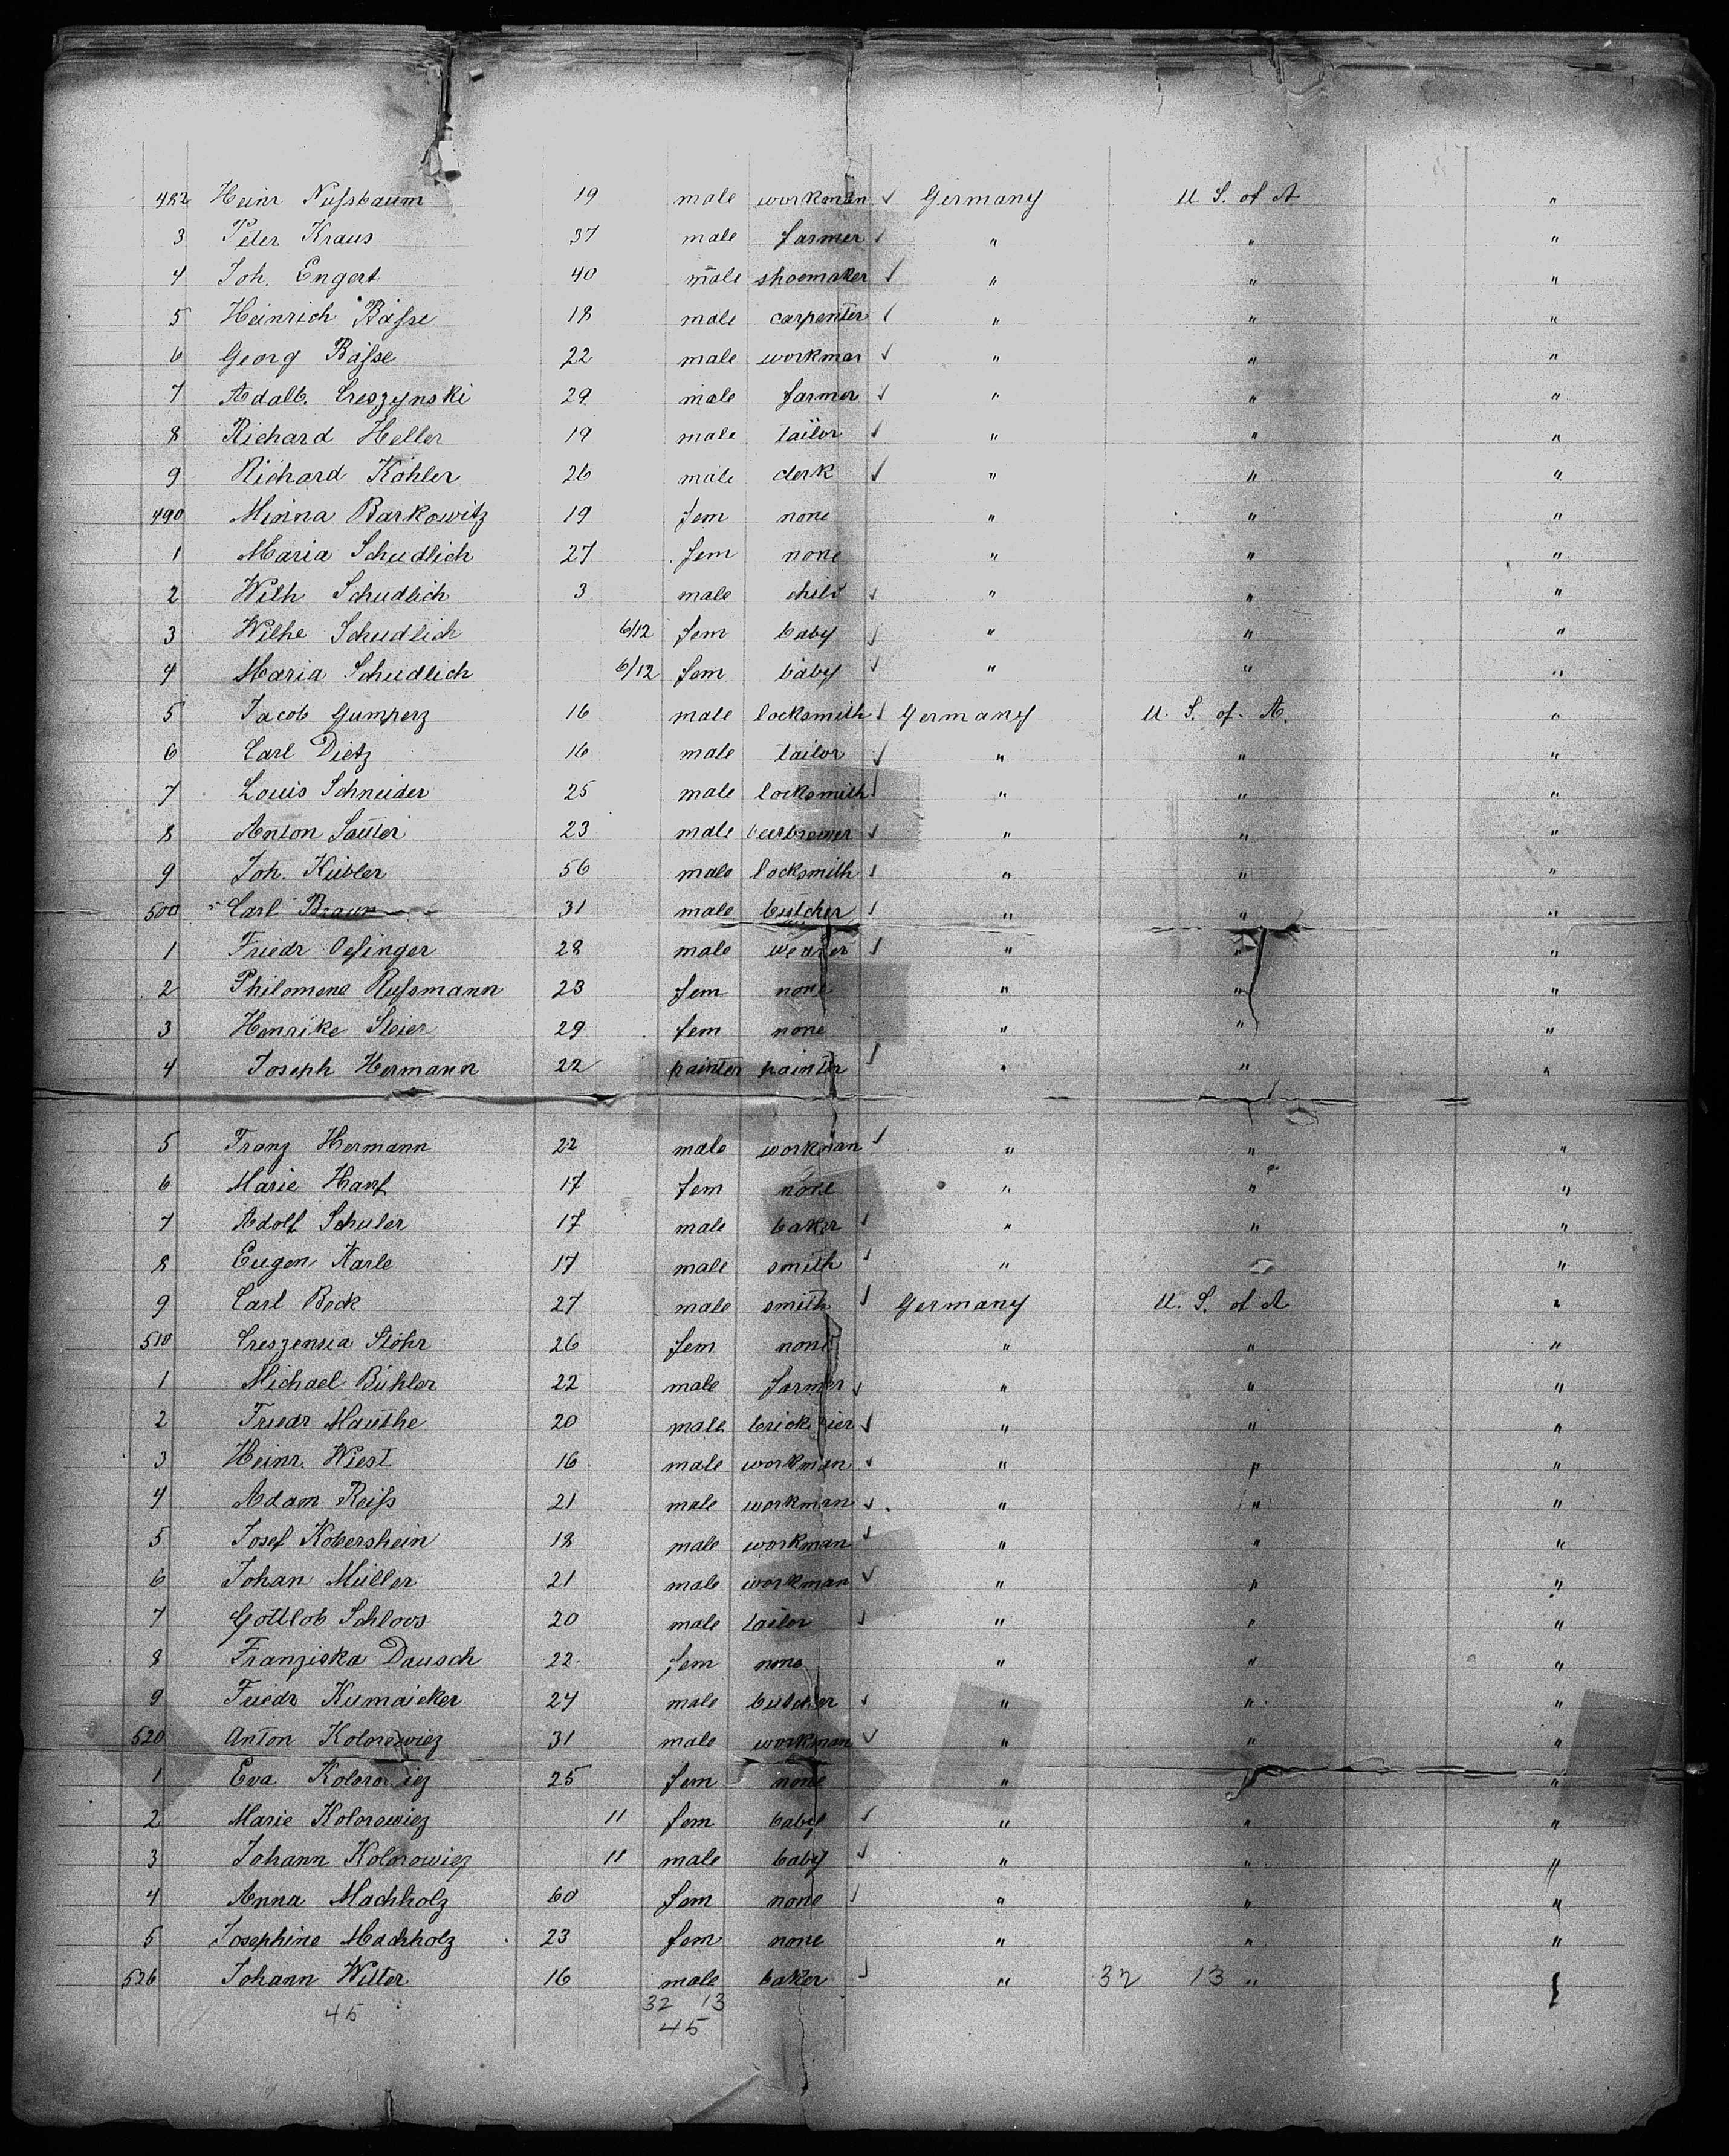 482 Heinr Nußbaum 19 male workman ✓ Germany U S. of A "
3 Peter Kraus 37 male farmer ✓ " " "
4 Joh. Engert 40 male shoemaker ✓ " " "
5 Heinrich Bäße 18 male carpenter ✓ " " "
6 Georg Bäße 22 male workman ✓ " " "
7 Adalb. Creszynski 29 male farmer ✓ " " "
8 Richard Heller 19 male tailor ✓ " " "
9 Richard Köhler 26 male clerk ✓ " " "
490 Minna Barkowitz 19 fem none " " "
1 Maria Schudlich 27 fem none " " "
2 Wilh Schudlich 3 male child ✓ " " "
3 Wilhe Schudlich 6/12 fem baby ✓ " " "
4 Maria Schudlich 6/12 fem baby ✓ " " "
5 Jacob Gumperz 16 male locksmith ✓ Germany U. S. of A. "
6 Carl Dietz 16 male tailor ✓ " " "
7 Louis Schneider 25 male locksmith ✓ " " "
8 Anton Sauter 23 male beerbrewer ✓ " " "
9 Joh. Kübler 56 male locksmith ✓ " " "
500 Carl Braun 31 male butcher ✓ " " "
1 Friedr Oesinger 28 male weaver ✓ " " "
2 Philomene Rußmann 23 fem none " " "
3 Henrike Steier 29 fem none " " "
4 Joseph Hermann 22 painter painter ✓ " " "
5 Franz Hermann 22 male workman ✓ " " "
6 Marie Hanf 17 fem none " " "
7 Adolf Schuler 17 male baker ✓ " " "
8 Eugen Karle 17 male smith ✓ " "
9 Carl Beck 27 male smith ✓ Germany U. S. of A "
510 Creszensia Stöhr 26 fem none " " "
1 Michael Bühler 22 male farmer ✓ " " "
2 Friedr Mauthe 20 male ✓ " " "
3 Heinr. Wiest 16 male workman ✓ " " "
4 Adam Reiß 21 male workman ✓ " " "
5 Josef Kobershein 18 male workman ✓ " " "
6 Johan Müller 21 male workman ✓ " " "
7 Gottlob Schloos 20 male tailor ✓ " " "
8 Franziska Dausch 22 fem none " " "
9 Friedr Kumaicker 24 male butcher ✓ " " "
520 Anton Kolorowicz 31 male workman ✓ " " "
1 Eva Kolorowicz 25 fem none " " "
2 Marie Kolorowicz 11 fem baby ✓ " " "
3 Johann Kolorowicz 11 male baby ✓ " " "
4 Anna Machholz 60 fem none ✓ " " "
5 Josephine Machholz 23 fem none " " "
526 Johann Witter 16 male baker ✓ " 32 13 " "
45 32 13
45